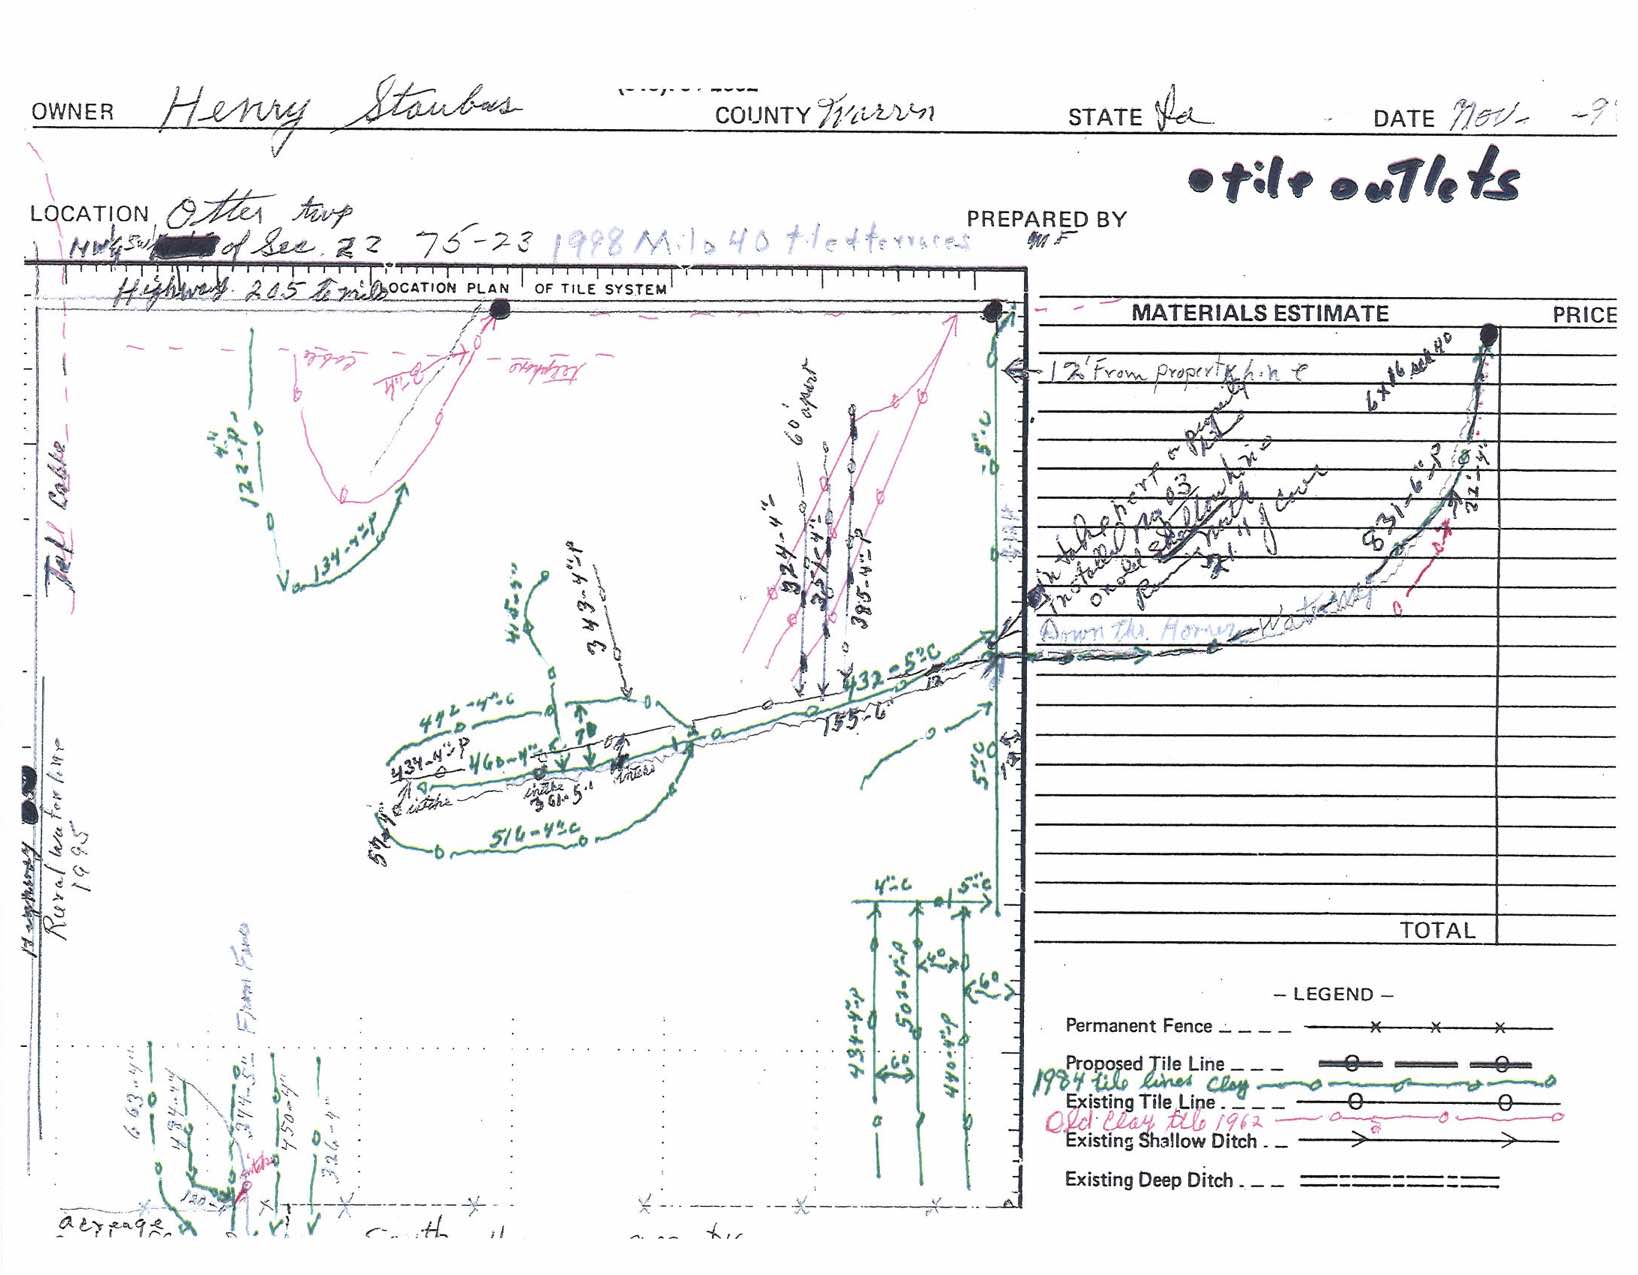 OWNER Henry Staubus COUNTY Warren STATE Ia DATE Nov-
• tile outlets
LOCATION Otter twp PREPARED BY
of Sec. 22 75-23 1998 Milo 40 tiled terraces
Highway 205 to milo
LOCATION PLAN OF TILE SYSTEM
MATERIALS ESTIMATE PRICE
12' From property line
6x16 sch 40
telephone
cable
4"
122-P
134-4"-P
Tell Cable
60' apart
5"-C
324-4"
351-4"
385-4"-P
intake port on property
line
Installed 03
on old shallow line
Run North
831-6"-P
22'-4"
Down The Horner Waterway
415-5"
343-4"-P
432-5"C
12
155-6"
492-4"-C
70
434-4"-P
460-4"-C
intake
intake
intake
361-5"
57-4"
516-4"C
5"-C
Highway
Rural Water line
1995
4"-C 5"-C
40
60
60
434-4"-P
502-4"-P
440-4"-P
TOTAL
From Fence
663-4"
484-4"
274-5"
450-4"
326-4"
intake
120
acreage
South
– LEGEND –
Permanent Fence
Proposed Tile Line
1984 tile lines clay
Existing Tile Line
Old Clay tile 1962
Existing Shallow Ditch
Existing Deep Ditch